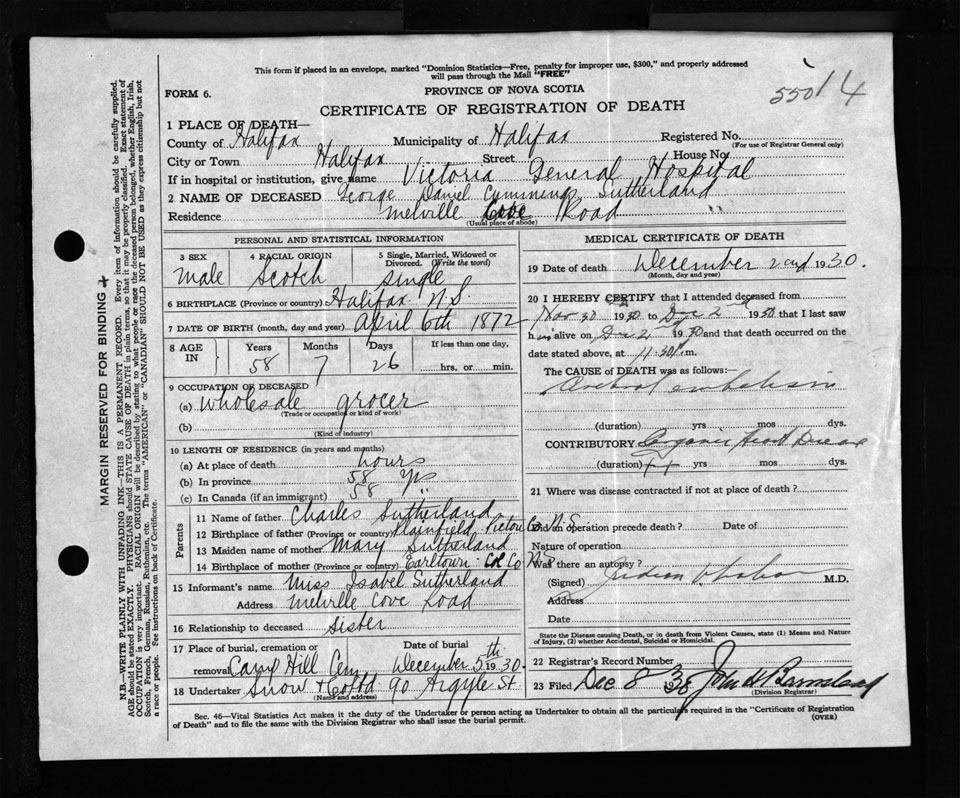 This form if placed in an envelope, marked "Dominion Statistics—Free, penalty for improper use, $300," and properly addressed
will pass through the Mail "FREE"
FORM 6.
PROVINCE OF NOVA SCOTIA
CERTIFICATE OF REGISTRATION OF DEATH
5501 4
1 PLACE OF DEATH—
County of Halifax Municipality of Halifax Registered No.
(For use of Registrar General only)
City or Town Halifax Street House No
If in hospital or institution, give name Victoria General Hospital
2 NAME OF DECEASED George Daniel Cummings Sutherland
Residence Melville Cove Road
(Usual place of abode)
PERSONAL AND STATISTICAL INFORMATION
3 SEX 4 RACIAL ORIGIN 5 Single, Married, Widowed or
Divorced. (Write the word)
male Scotch Single
6 BIRTHPLACE (Province or country) Halifax N.S.
7 DATE OF BIRTH (month, day and year) April 6th 1872
8 AGE IN Years Months Days If less than one day,
58 7 26 hrs. or min.
9 OCCUPATION OF DECEASED
(a) Wholesale grocer
(Trade or occupation or kind of work)
(b)
(Kind of industry)
10 LENGTH OF RESIDENCE (in years and months)
(a) At place of death hours
(b) In province 58 yrs
(c) In Canada (if an immigrant) 58 "
Parents
11 Name of father Charles Sutherland
12 Birthplace of father (Province or country) Plainfield Pictou Co. N.S.
13 Maiden name of mother Mary Sutherland
14 Birthplace of mother (Province or country) Earltown Col Co N.S.
15 Informant's name Miss Isabel Sutherland
Address Melville Cove Road
16 Relationship to deceased Sister
17 Place of burial, cremation or removal Camp Hill Cem Date of burial December 5th 1930
18 Undertaker Snow & Co Ltd 90 Argyle St
(Name and address)
MEDICAL CERTIFICATE OF DEATH
19 Date of death December 2nd 1930.
(Month, day and year)
20 I HEREBY CERTIFY that I attended deceased from
Nov 30 1930 to Dec 2nd 1930 that I last saw
him alive on Dec 2nd 1930 and that death occurred on the
date stated above, at 11.30 m.
The CAUSE of DEATH was as follows:—
Cerebral embolism
(duration) yrs mos dys.
CONTRIBUTORY Organic Heart Disease
(duration) yrs mos dys.
21 Where was disease contracted if not at place of death?
Did an operation precede death? Date of
Nature of operation
Was there an autopsy?
(Signed) M.D.
Address
Date
State the Disease causing Death, or in death from Violent Causes, state (1) Means and Nature
of Injury, (2) whether Accidental, Suicidal or Homicidal.
22 Registrar's Record Number
23 Filed Dec 8
(Division Registrar)
Sec. 46—Vital Statistics Act makes it the duty of the Undertaker or person acting as Undertaker to obtain all the particulars required in the "Certificate of Registration
of Death" and to file the same with the Division Registrar who shall issue the burial permit.
(OVER)
MARGIN RESERVED FOR BINDING
N.B.—WRITE PLAINLY WITH UNFADING INK—THIS IS A PERMANENT RECORD. Every item of information should be carefully supplied.
AGE should be stated EXACTLY. PHYSICIANS should STATE CAUSE OF DEATH in plain terms, so that it may be properly classified. Exact statement of
OCCUPATION is very important. RACIAL ORIGIN will be described by stating to what people or race the deceased person belonged, whether English, Irish,
Scotch, French, German, Russian, Ruthenian, etc. The terms "AMERICAN" or "CANADIAN" SHOULD NOT BE USED as they express citizenship but not
a race or people. See instructions on back of Certificate.